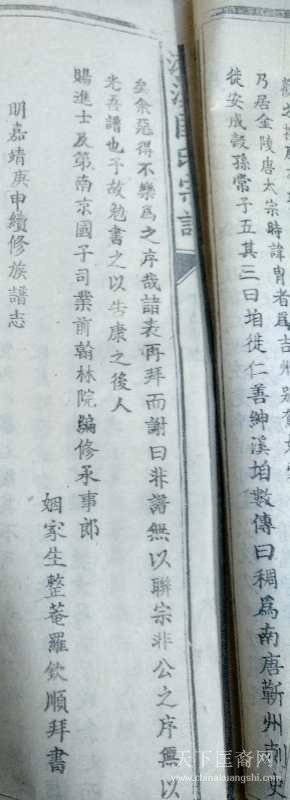 乃居金陵唐太宗時諱胄者爲吉州別駕
徙安成穀孫常子五其三曰垍徙仁善紳溪垍數傳曰稠爲南唐蘄州刺史
匡氏宗譜
矣余惡得不樂爲之序哉諸表再拜而謝曰非譜無以聯宗非公之序無以
光吾譜也予故勉書之以告康之後人
賜進士及第南京國子司業前翰林院編修承事郎
姻家生整菴羅欽順拜書
明嘉靖庚申續修族譜志
天下匡裔网
www.chinakuangshi.com